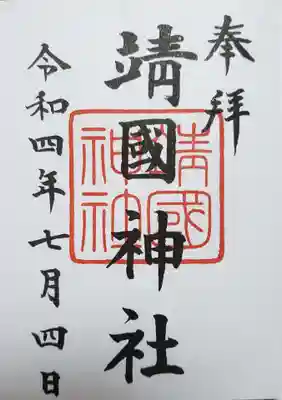 奉拝
靖國神社
靖國
神社
令和四年七月四日